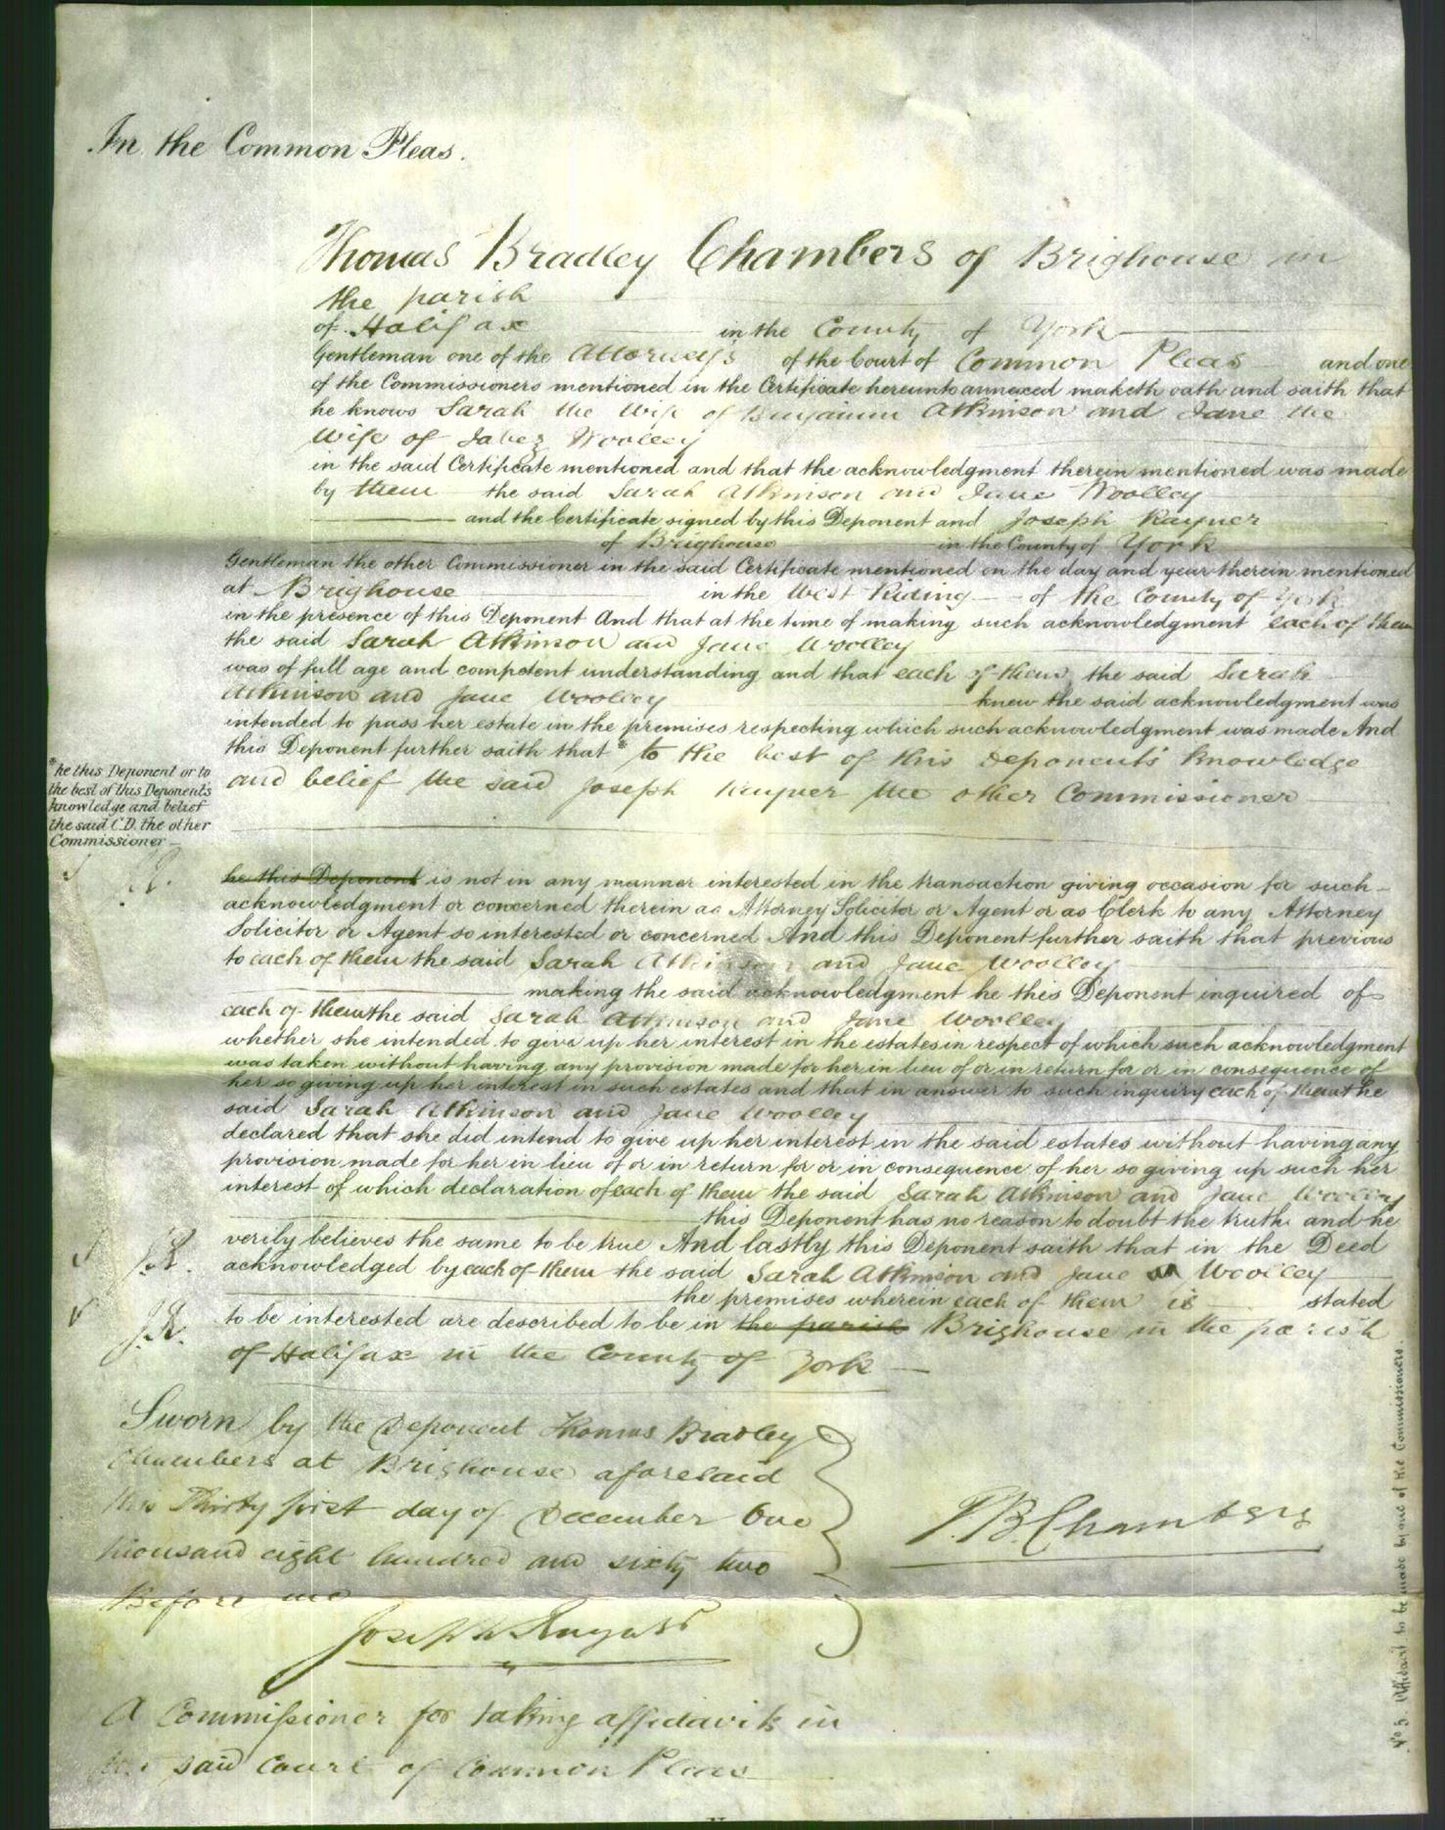 In the Common Pleas.
Thomas Bradley Chambers of Brighouse in
the parish
of Halifax in the County of York
Gentleman one of the Attorneys of the Court of Common Pleas and one
of the Commissioners mentioned in the Certificate hereunto annexed maketh oath and saith that
he knows Sarah the Wife of Benjamin Atkinson and Jane the
Wife of Jabez Woolley
in the said Certificate mentioned and that the acknowledgment therein mentioned was made
by them the said Sarah Atkinson and Jane Woolley
and the Certificate signed by this Deponent and Joseph Rayner
of Brighouse in the County of York
Gentleman the other Commissioner in the said Certificate mentioned on the day and year therein mentioned
at Brighouse in the West Riding of the County of York
in the presence of this Deponent And that at the time of making such acknowledgment each of them
the said Sarah Atkinson and Jane Woolley
was of full age and competent understanding and that each of them the said Sarah
Atkinson and Jane Woolley knew the said acknowledgment was
intended to pass her estate in the premises respecting which such acknowledgment was made And
this Deponent further saith that * to the best of this Deponent's knowledge
and belief the said Joseph Rayner the other Commissioner
*he this Deponent or to
the best of this Deponents
knowledge and belief
the said C.D. the other
Commissioner
J.R.
he this Deponent is not in any manner interested in the transaction giving occasion for such
acknowledgment or concerned therein as Attorney Solicitor or Agent or as Clerk to any Attorney
Solicitor or Agent so interested or concerned And this Deponent further saith that previous
to each of them the said Sarah Atkinson and Jane Woolley
making the said acknowledgment he this Deponent inquired of
each of them the said Sarah Atkinson and Jane Woolley
whether she intended to give up her interest in the estates in respect of which such acknowledgment
was taken without having any provision made for her in lieu of or in return for or in consequence of
her so giving up her interest in such estates and that in answer to such inquiry each of them the
said Sarah Atkinson and Jane Woolley
declared that she did intend to give up her interest in the said estates without having any
provision made for her in lieu of or in return for or in consequence of her so giving up such her
interest of which declaration of each of them the said Sarah Atkinson and Jane Woolley
this Deponent has no reason to doubt the truth and he
verily believes the same to be true And lastly this Deponent saith that in the Deed
J.R.
acknowledged by each of them the said Sarah Atkinson and Jane Woolley
the premises wherein each of them is stated
J.R.
to be interested are described to be in the parish Brighouse in the parish
of Halifax in the County of York
Sworn by the Deponent Thomas Bradley
Chambers at Brighouse aforesaid
this Thirty first day of December One
thousand eight hundred and sixty two
Before me
T.B. Chambers
Joseph Rayner
A Commissioner for taking affidavits in
the said Court of Common Pleas
No 3. Affidavit to be made by one of the Commissioners.